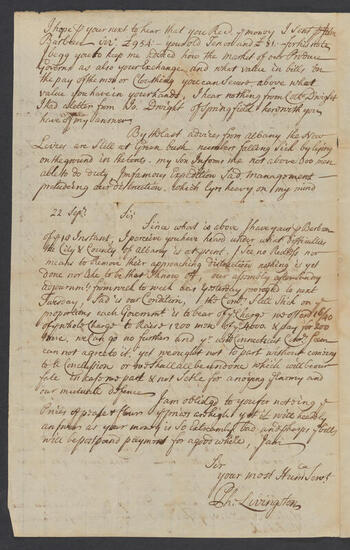 I hope p your next to hear that you Recd y money I sent p John
Barbour viz £954 - your old Tenor and £81 - for his note,
I begg you to keep me advised how the market of our Province
Governs as also your Exchange and what value in bills on
the pay of the men or Cloathing you can secure above what
value you have in your hands, I hear nothing from Coll Dwight
I had a letter from Mr Dwight of Springfield & herewith you
have my answer
By the last advices from albany the New
Levies are Still at Green bush numbers falling Sick by lying
on the ground in the tents. my Son Informs me not above 800 men
able to do duty. Infamous Expedition Sad management
preluding our distruction. which lyes heavy on my mind
22 Sepr. Sir
Since what is above I have your p Barbour
of 10 Instant, I perceive you have heard under what difficulties
the City & County of albany is at present. I see no Redress nor
means to Remove their approaching distruction nothing is yet
done nor like to be that I know off. our assembly after having
adjourned from week to week has yesterday to next
Tuesday, Sad is our Condition, the Comrs Still stick on ye
proportions each Goverment is to bear of ye Charge we offerd
of ye whole Charge to Raise 1200 men of £4600 a day for 200
time, we can go no further and ye Connecticut Comrs
can not agree to it. yet we ought not to part without coming
to a Conclusion or we shall all be undone which will be our
fate
our mutuale defence
I am obliged to you for noting ye
Prices of & flour yr prices are high yet it will hardly
answer as your money is So Extreamly bad and
will be postpond payment for a good while, I am
Sir
your most Humle Servt
Ph: Livingston